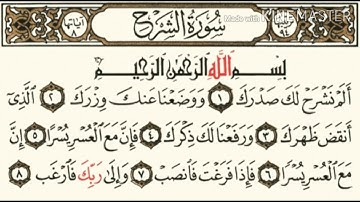 آياتها ٨ سُورَةُ الشَّرْحِ ترتيبها ٩٤
Made with KINEMASTER
بِسْمِ اللَّهِ الرَّحْمَٰنِ الرَّحِيمِ
أَلَمْ نَشْرَحْ لَكَ صَدْرَكَ ١ وَوَضَعْنَا عَنكَ وِزْرَكَ ٢ الَّذِي
أَنقَضَ ظَهْرَكَ ٣ وَرَفَعْنَا لَكَ ذِكْرَكَ ٤ فَإِنَّ مَعَ الْعُسْرِ يُسْرًا ٥ إِنَّ
مَعَ الْعُسْرِ يُسْرًا ٦ فَإِذَا فَرَغْتَ فَانصَبْ ٧ وَإِلَىٰ رَبِّكَ فَارْغَب ٨